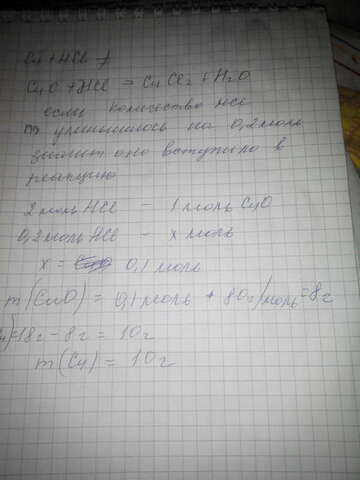 Cu + HCl ≠
CuO + HCl = CuCl2 + H2O
если количество HCl
уменьшилось на 0,2 моль
значит оно вступило в
реакцию
2 моль HCl — 1 моль CuO
0,2 моль HCl — x моль
x = 0,1 моль
m(CuO) = 0,1 моль * 80 г/моль = 8 г
)=18 г - 8 г = 10 г
m(Cu) = 10 г